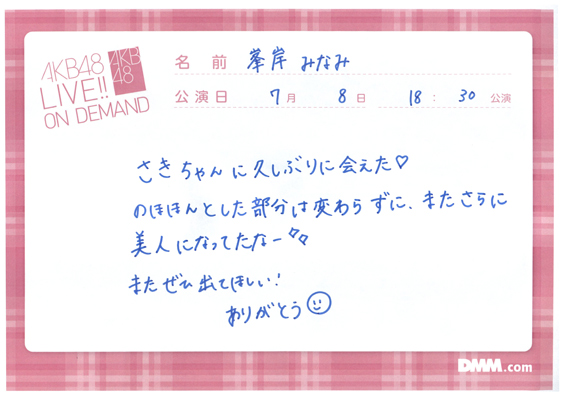 AKB48
LIVE!!
ON DEMAND
AKB
48
名 前 峯岸 みなみ
公演日 7月 8日 18:30 公演
さきちゃんに久しぶりに会えた♡
のほほんとした部分は変わらずに、またさらに
美人になってたなー
またぜひ出てほしい!
ありがとう
DMM.com